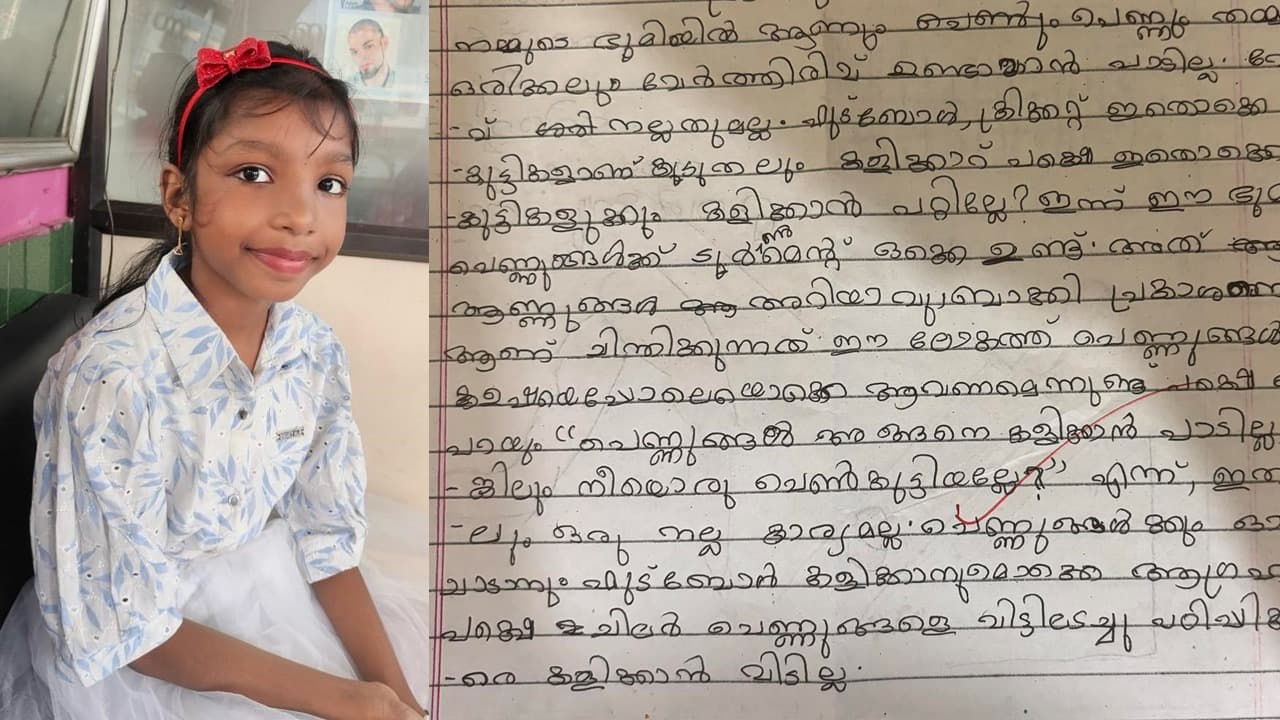 നമ്മുടെ ഭൂമിയിൽ ആണ്ണും പെണ്ണും പെണ്ണും തമ്മ
ഒരിക്കലും വേർത്തിരിവ് ഉണ്ടാക്കാൻ പാടില്ല.
-വ് നല്ലതുമല്ല. ഫുട്ബോൾ, ക്രിക്കറ്റ് ഇതൊക്കെ
-കുട്ടികളാണ് കൂടുതലും കളിക്കാറ് പക്ഷെ ഇതൊക്കെ
-കുട്ടികളുക്കും കളിക്കാൻ പറ്റില്ലേ? ഇന്ന് ഈ
പെണ്ണുങ്ങൾക്ക് ടൂർണമെന്റ് ഒക്കെ ഉണ്ട്. അത്
ആണ്ണുങ്ങൾ അറിയാവുബോക്കി പ്രകാശ
ആണ് ചിന്തിക്കുന്നത് ഈ ലോകത്ത് പെണ്ണുങ്ങൾ
പോലെയൊക്കെ ആവണമെന്നുണ്ട് പക്ഷെ
പറയും “പെണ്ണുങ്ങൾ അങ്ങനെ കളിക്കാൻ പാടില്ല
-ങ്കിലും നീയൊരു പെൺകുട്ടിയല്ലേ?” എന്ന്, ഇത
-ലും ഒരു നല്ല കാര്യമല്ല. പെണ്ണുങ്ങൾക്കും
ചാടാനും ഫുട്ബോൾ കളിക്കാനുമൊക്കെ ആഗ്രഹ
പക്ഷെ ചിലർ പെണ്ണുങ്ങളെ വീട്ടിലടച്ചു പഠിപ്പിക
-രെ കളിക്കാൻ വിടില്ല.